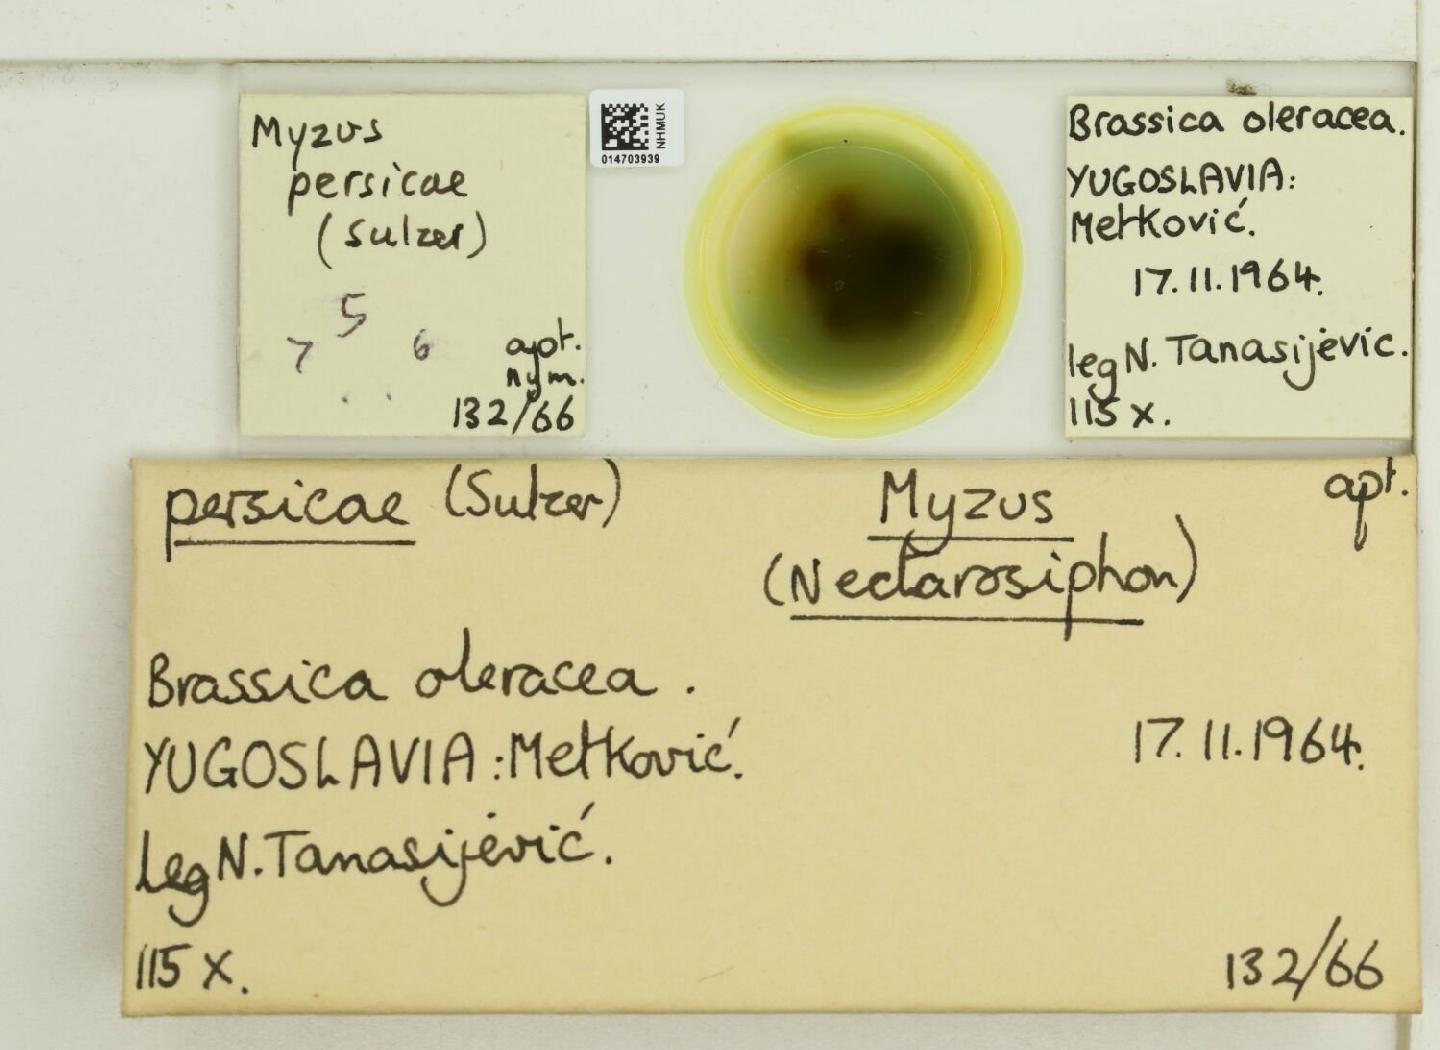 Myzus
persicae
(Sulzer)
5
7 6
apt.
nym.
132/66
NHMUK
014703939
Brassica oleracea.
YUGOSLAVIA:
Metković.
17.11.1964.
leg N. Tanasijevic.
115 x.
persicae (Sulzer) Myzus apt.
(Nectarosiphon)
Brassica oleracea.
YUGOSLAVIA: Metković. 17.11.1964.
Leg N. Tanasijević.
115 x. 132/66